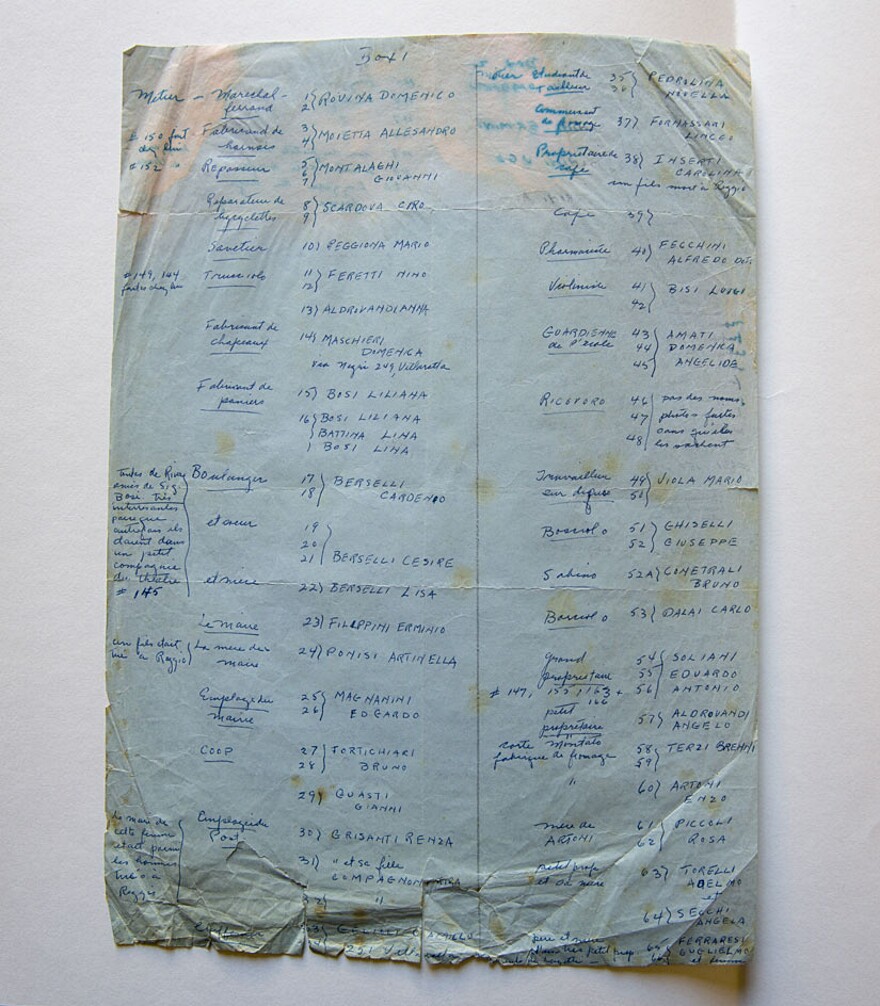 Box 1
Metier - Marechal-ferrand 1 2 } ROVINA DOMENICO
# 150 fort
Fabricand de harnais 3 4 } MOIETTA ALLESANDRO
# 152
Repasseur 5 6 7 } MONTALAGHI
GIOVANNI
Reparateur de bycyclettes 8 9 } SCARDOVA CIRO
Savetier 10) PEGGIONA MARIO
# 149, 144
Truciolo 11 12 } FERETTI NINO
13) ALDROVANDI ANNA
Fabricant de chapeaux 14) MASCHIERI
DOMENICA
via Negri 249, Villarotta
Fabricant de paniers 15) BOSI LILIANA
16 } BOSI LILIANA
BATTINA LINA
BOSI LINA
amies de Sig.
Bosi. Très
intéressantes
parceque
autrefois ils
étaient dans
un petit
compagnie
du théâtre
# 145
Boulanger 17 18 } BERSELLI
CARDENIO
et soeur 19
20
21 BERSELLI CESIRE
et mere 22) BERSELLI LISA
Le Maire 23) FILIPPINI ERMINIO
un fils était tué à Reggio
La mere du maire 24) PONISI ARTINELLA
Employe du Maire 25 26 } MAGNANINI
EDGARDO
COOP 27 28 } TORTICHIARI
BRUNO
29) GUASTI
GIANNI
Le mari de
cette femme
etait parmi
les hommes
tués à
Reggio
Employe de Post 30) GRISANTI RENZA
31) " et sa fille
COMPAGNONI
32 "
33
Etudiant de
tailleur 35 36 } PEDROLINA
NOVELLA
Commercant de fromage 37) FORNASSARI
LINCEO
Proprietaire de café 38) INSERTI
CAROLINA
un fils mort à Reggio
Café 39}
Pharmaciste 40) FECCHINI
ALFREDO
Violiniste 41 42 } BISI LUIGI
GUARDIENNE de l'école 43 AMATI
44 DOMENICA
45 ANGELIDE
RICOVORO 46 pas des noms,
47 photos faites
48 sans qu'elles
les sachent
Travailleur 49 51 } VIOLA MARIO
Boscaiolo 51 52 } GHISELLI
GIUSEPPE
Sabino 52A CONETRALI
BRUNO
53) DALAI CARLO
Grand proprietaire 54 SOLIANI
55 EDUARDO
56 ANTONIO
# 147, 155, 163 + 166
petit propriétaire 57) ALDROVANDI
ANGELO
corte Montato
fabrique de fromage 58 59 } TERZI
" 60) ARTONI
ENZO
mere de ARTONI 61 62 } PICCOLI
ROSA
petit prop et sa mere 63) TORELLI
ADELMO
et
64) SECCHI
ANGELA
pere et mere FERRARESI
GUGLIELMO